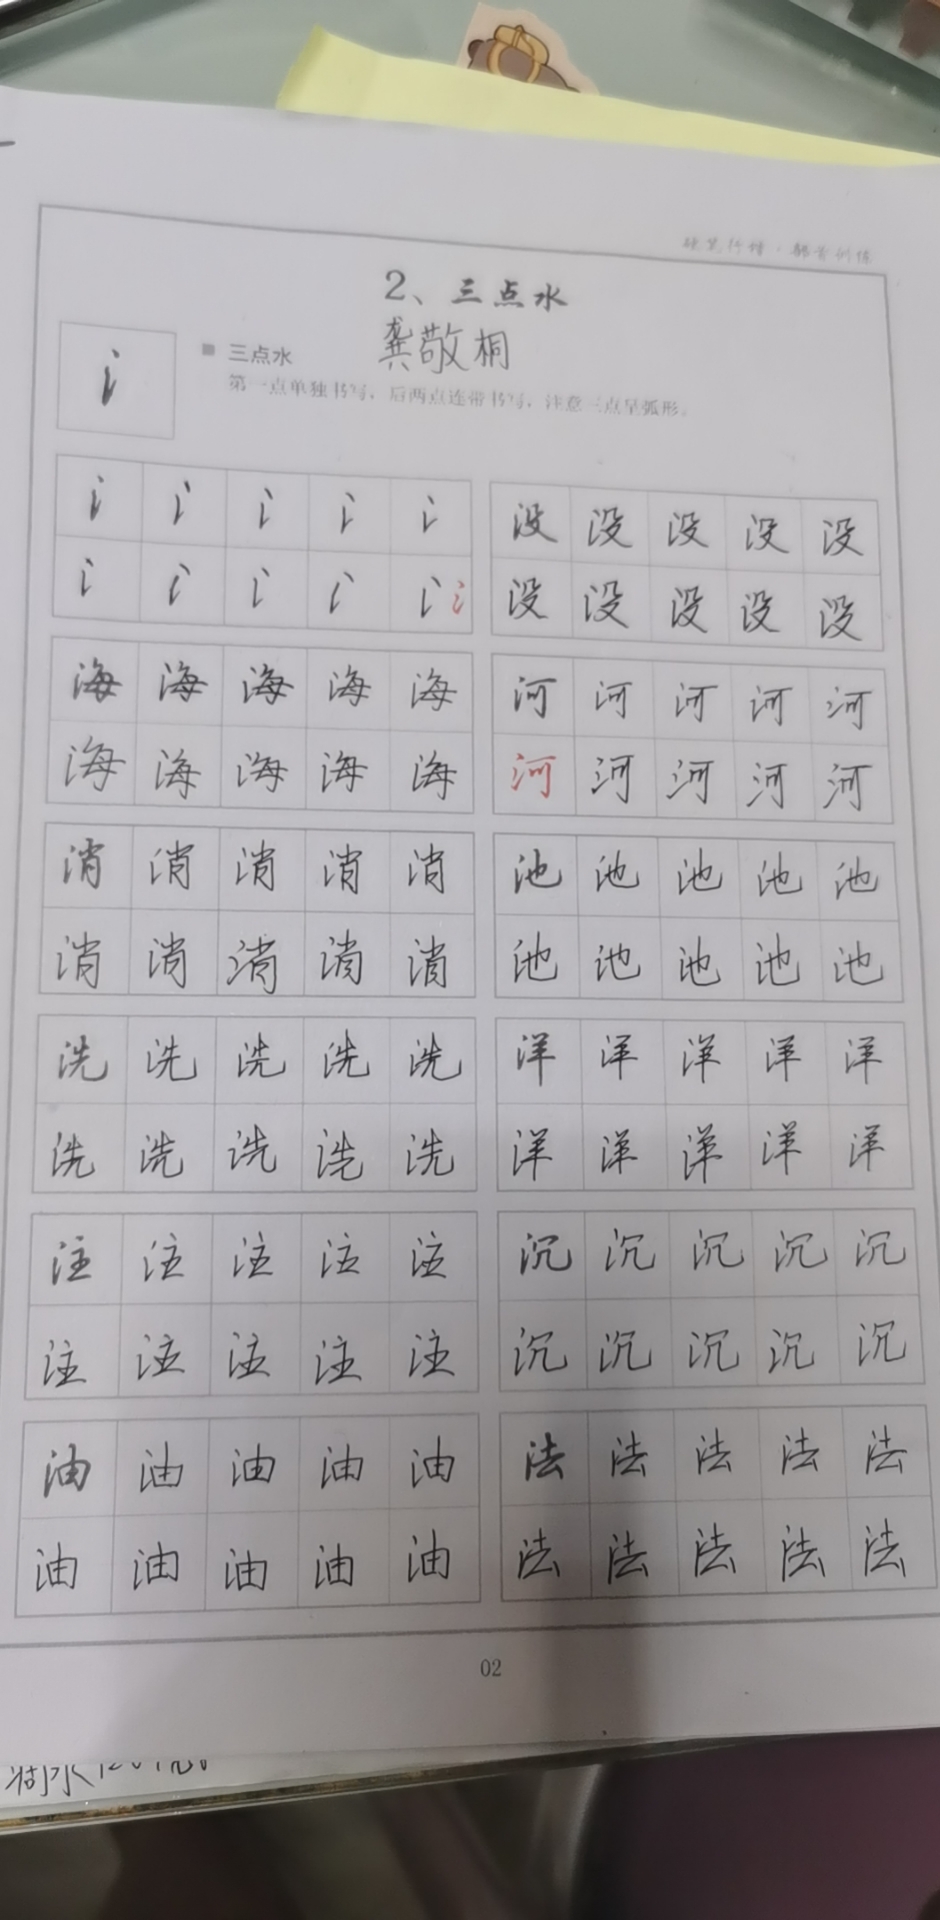 硬笔行楷·部首训练
2、三点水
龚敬桐
氵
三点水
第一点单独书写，后两点连带书写，注意三点呈弧形。
氵氵氵氵氵
氵氵氵氵氵氵
没没没没没
没没没没没
海海海海海
海海海海海
河河河河河
河河河河河
消消消消消
消消消消消
池池池池池
池池池池池
洗洗洗洗洗
洗洗洗洗洗
洋洋洋洋洋
洋洋洋洋洋
注注注注注
注注注注注
沉沉沉沉沉
沉沉沉沉沉
油油油油油
油油油油油
法法法法法
法法法法法
02